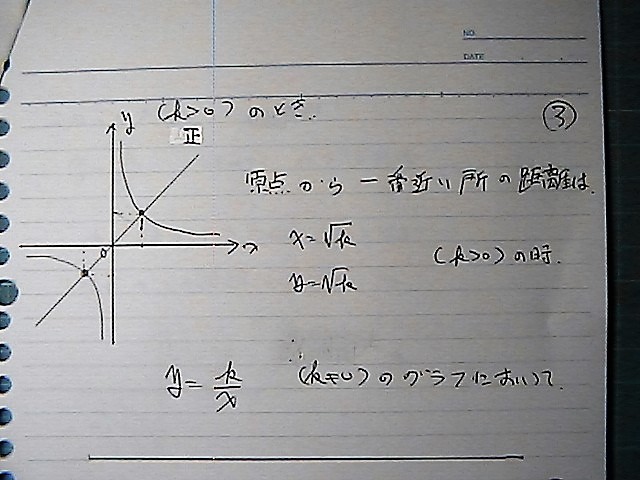 NO.
DATE
(k>0) のとき.
③
正
y
原点から一番近い所の距離は.
x=√k
(k>0)の時.
y=√k
0
x
y=k/x (k≠0)のグラフにおいて.